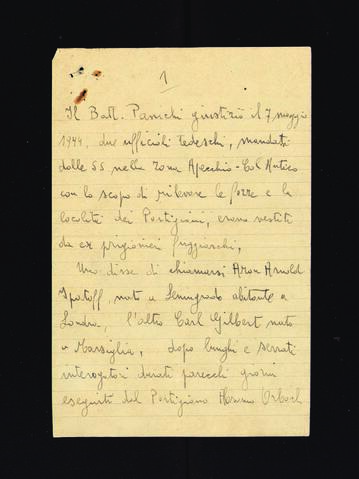 1
Il Batt. Panichi giustiziò il 7 maggio
1944, due ufficiali tedeschi, mandati
dalle SS nella zona Apecchio-Col Antico
con lo scopo di rilevare le forze e la
località dei Partigiani, erano vestiti
da ex prigionieri fuggiaschi,
Uno disse di chiamarsi Aron Arnold
Spotoff, nato a Leningrado abitante a
Londra, l'altro Carl Gilbert nato
a Marsiglia, dopo lunghi e serrati
interogatori durati parecchi giorni
eseguiti dal Partigiano Abramo Orbach